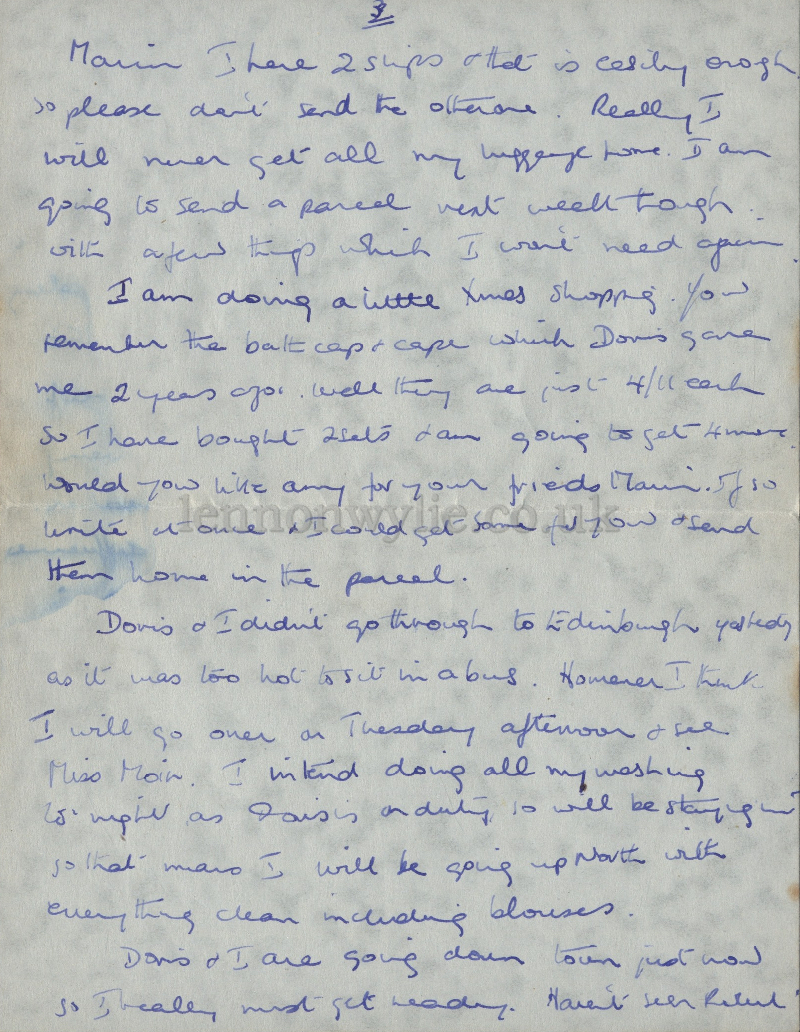 3
Mavin I have 2 slips & that is easily enough
so please don't send the other one. Really I
will never get all my luggage home. I am
going to send a parcel next week though
with a few things which I won't need again.
I am doing a little Xmas shopping. You
remember the bath cap & cape which Doris gave
me 2 years ago. Well they are just 4/11 each
so I have bought 2 sets & am going to get 4 more.
Would you like any for your friends Mavin. If so
write at once & I could get some for you & send
them home in the parcel.
lennonwylie.co.uk
Doris & I didn't go through to Edinburgh yesterday
as it was too hot to sit in a bus. However I think
I will go over on Tuesday afternoon & see
Miss Moir. I intend doing all my washing
to-night as Doris is on duty, so will be staying in
so that means I will be going up North with
everything clean including blouses.
Doris & I are going down town just now
so I really must get ready. Haven't seen